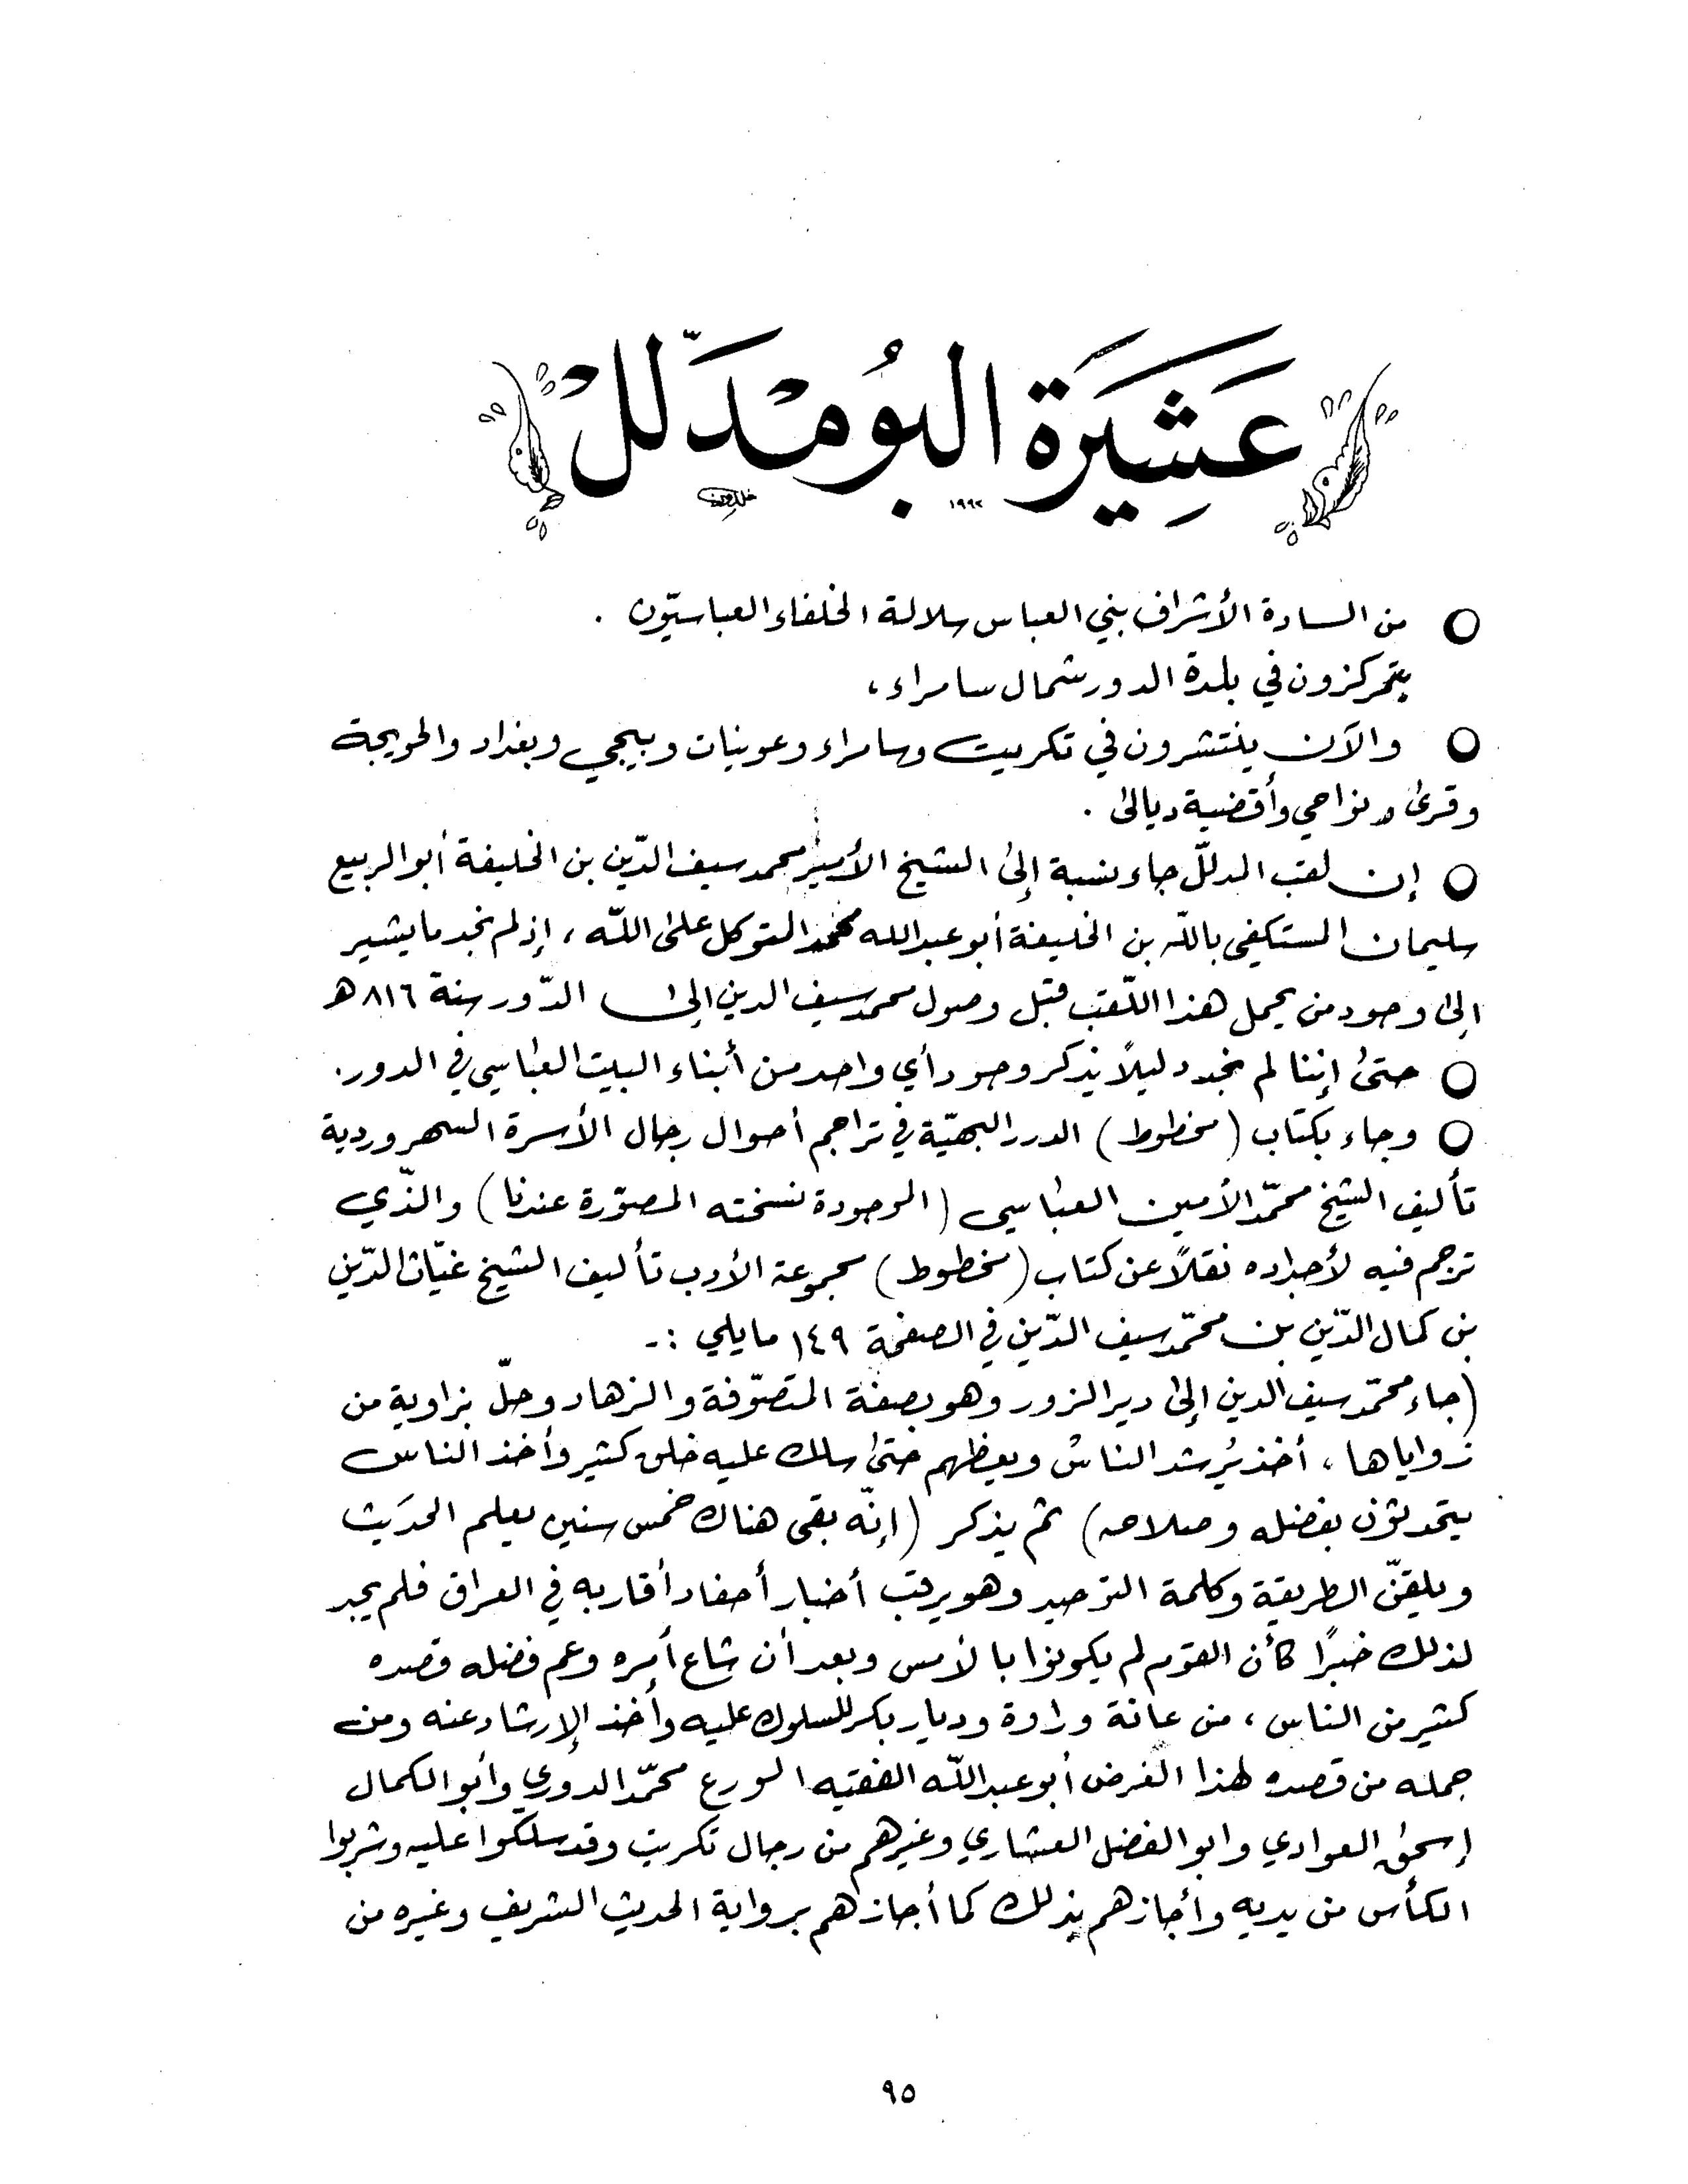 عَشِيَرة البُومْدَلّلْ
١٩٩٢
○ من السادة الأشراف بني العباس سلالة الخلفاء العباسيّون .
يتمركزون في بلدة الدور شمال سامراء ،
○ والآن ينتشرون في تكريت وسامراء وعوينات وبيجي وبغداد والحويجة
وقرى ونواحي وأقضية ديالى .
○ إن لقب المدلّل جاء نسبة إلى الشيخ الأمير محمد سيف الدّين بن الخليفة أبو الربيع
سليمان المستكفي باللّه بن الخليفة أبو عبد الله محمد المتوكل على اللّه ، إذ لم نجد ما يشير
إلى وجود من يحمل هذا اللّقب قبل وصول محمد سيف الدين إلى الدّور سنة ٨١٦ هـ
○ حتى إننا لم نجد دليلاً يذكر وجود أي واحد من أبناء البيت العباسي في الدور .
○ وجاء بكتاب ( مخطوط ) الدرر البهيّة في تراجم أحوال رجال الأسرة السهروردية
تأليف الشيخ محمّد الأمين العباسي ( الموجودة نسخته المصوّرة عندنا ) والذّي
ترجم فيه لأجداده نقلاً عن كتاب ( مخطوط ) مجموعة الأدب تأليف الشيخ غيّاث الدّين
بن كمال الدّين بن محمّد سيف الدّين في الصفحة ١٤٩ ما يلي :-
( جاء محمّد سيف الدين إلى دير الزور وهو بصفة المتصوّفة والزهاد وحلّ بزاوية من
زواياها ، أخذ يُرشد الناس ويعظهم حتى سلك عليه خلق كثير وأخذ الناس
يتحدثون بفضله وصلاحه ) ثم يذكر ( إنّه بقى هناك خمس سنين يعلم الحديث
ويلقنّ الطريقة وكلمة التوحيد وهو يرقب أخبار أحفاد أقاربه في العراق فلم يجد
لذلك خبرًا كأن القوم لم يكونوا بالأمس وبعد أن شاع أمره وعم فضله قصده
كثير من الناس ، من عانة وراوة وديار بكر للسلوك عليه وأخذ الإرشاد عنه ومن
جمله من قصده لهذا الغرض أبو عبد اللّه الفقيه الورع محمّد الدوري وأبو الكمال
إسحٰق العوادي وابو الفضل العشاري وغيرهم من رجال تكريت وقد سلكوا عليه وشربوا
الكأس من يديه وأجازهم بذلك كما أجازهم برواية الحديث الشريف وغيره من
٩٥